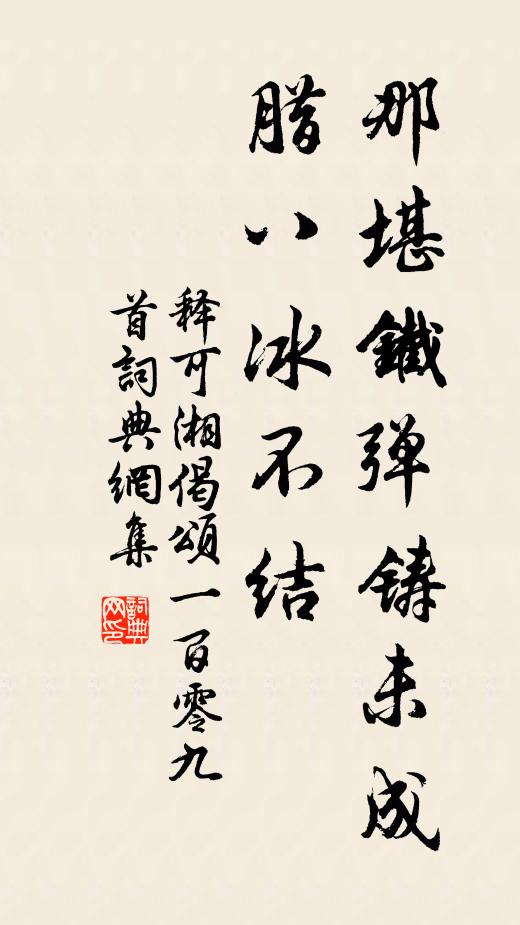 那堪鐵弹鑄未成
腊八冰不结
释可湘偈颂一百零九
首詞典網集
詞典
网印